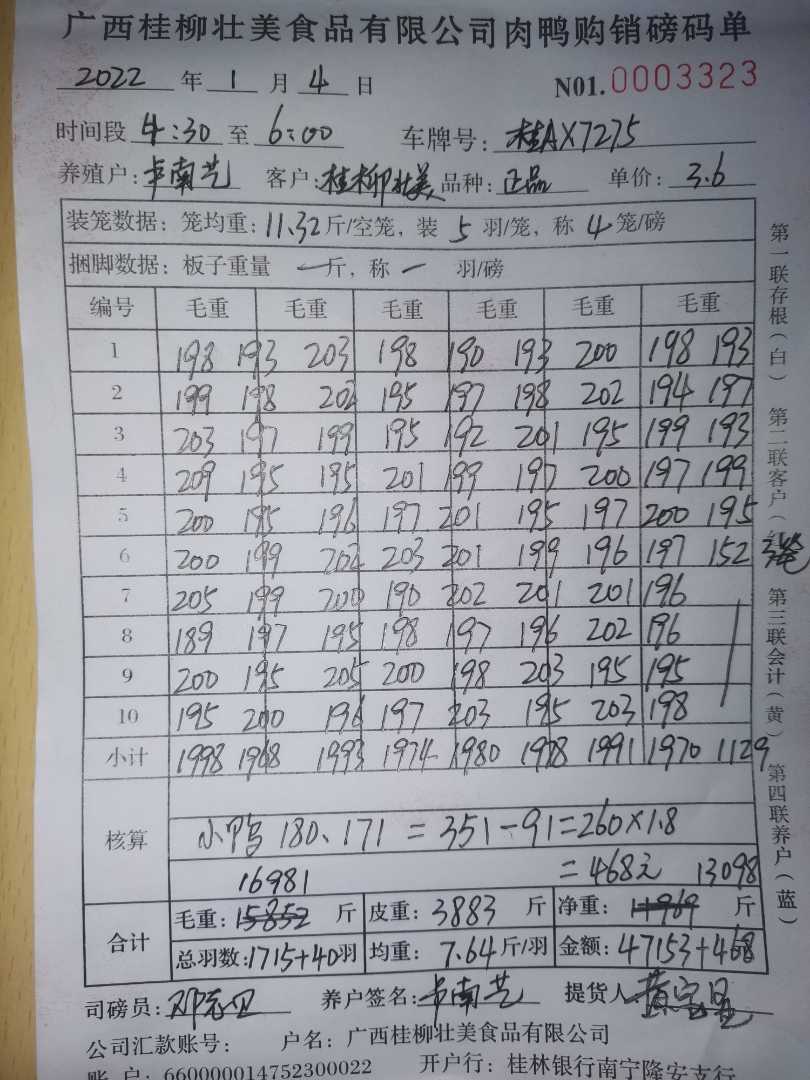 广西桂柳壮美食品有限公司肉鸭购销磅码单
2022 年 1 月 4 日 N01.0003323
时间段 4:30 至 6:00 车牌号: 桂AX7275
养殖户: 卡南艺 客户: 桂柳壮美 品种: 正品 单价: 3.6
装笼数据: 笼均重: 11.32斤/空笼, 装 5 羽/笼, 称 4 笼/磅
捆脚数据: 板子重量 一 斤, 称 一 羽/磅
编号 毛重 毛重 毛重 毛重 毛重 毛重
1 198 193 203 198 190 193 200 198 193
2 199 198 202 195 197 198 202 194 197
3 203 197 199 195 192 201 195 199 193
4 209 195 195 201 199 197 200 197 199
5 200 195 196 197 201 195 197 200 195
6 200 199 202 203 201 199 196 197 152
7 205 199 200 190 202 201 201 196
8 189 197 195 198 197 196 202 196
9 200 195 205 200 198 203 195 195
10 195 200 196 197 203 195 203 198
小计 1998 1968 1993 1974 1980 1978 1991 1970 1129
核算 小鸭 180、171 = 351-91=260×1.8
=468元
16981 13098
合计 毛重: 15852 斤 皮重: 3883 斤 净重: 11969 斤
总羽数: 1715+40羽 均重: 7.64斤/羽 金额: 47153+468
司磅员: 养户签名: 卡南艺 提货人
公司汇款账号: 户名: 广西桂柳壮美食品有限公司
账 户: 660000014752300022 开户行: 桂林银行南宁隆安支行
第一联存根(白) 第二联客户( 第三联会计(黄) 第四联养户(蓝)